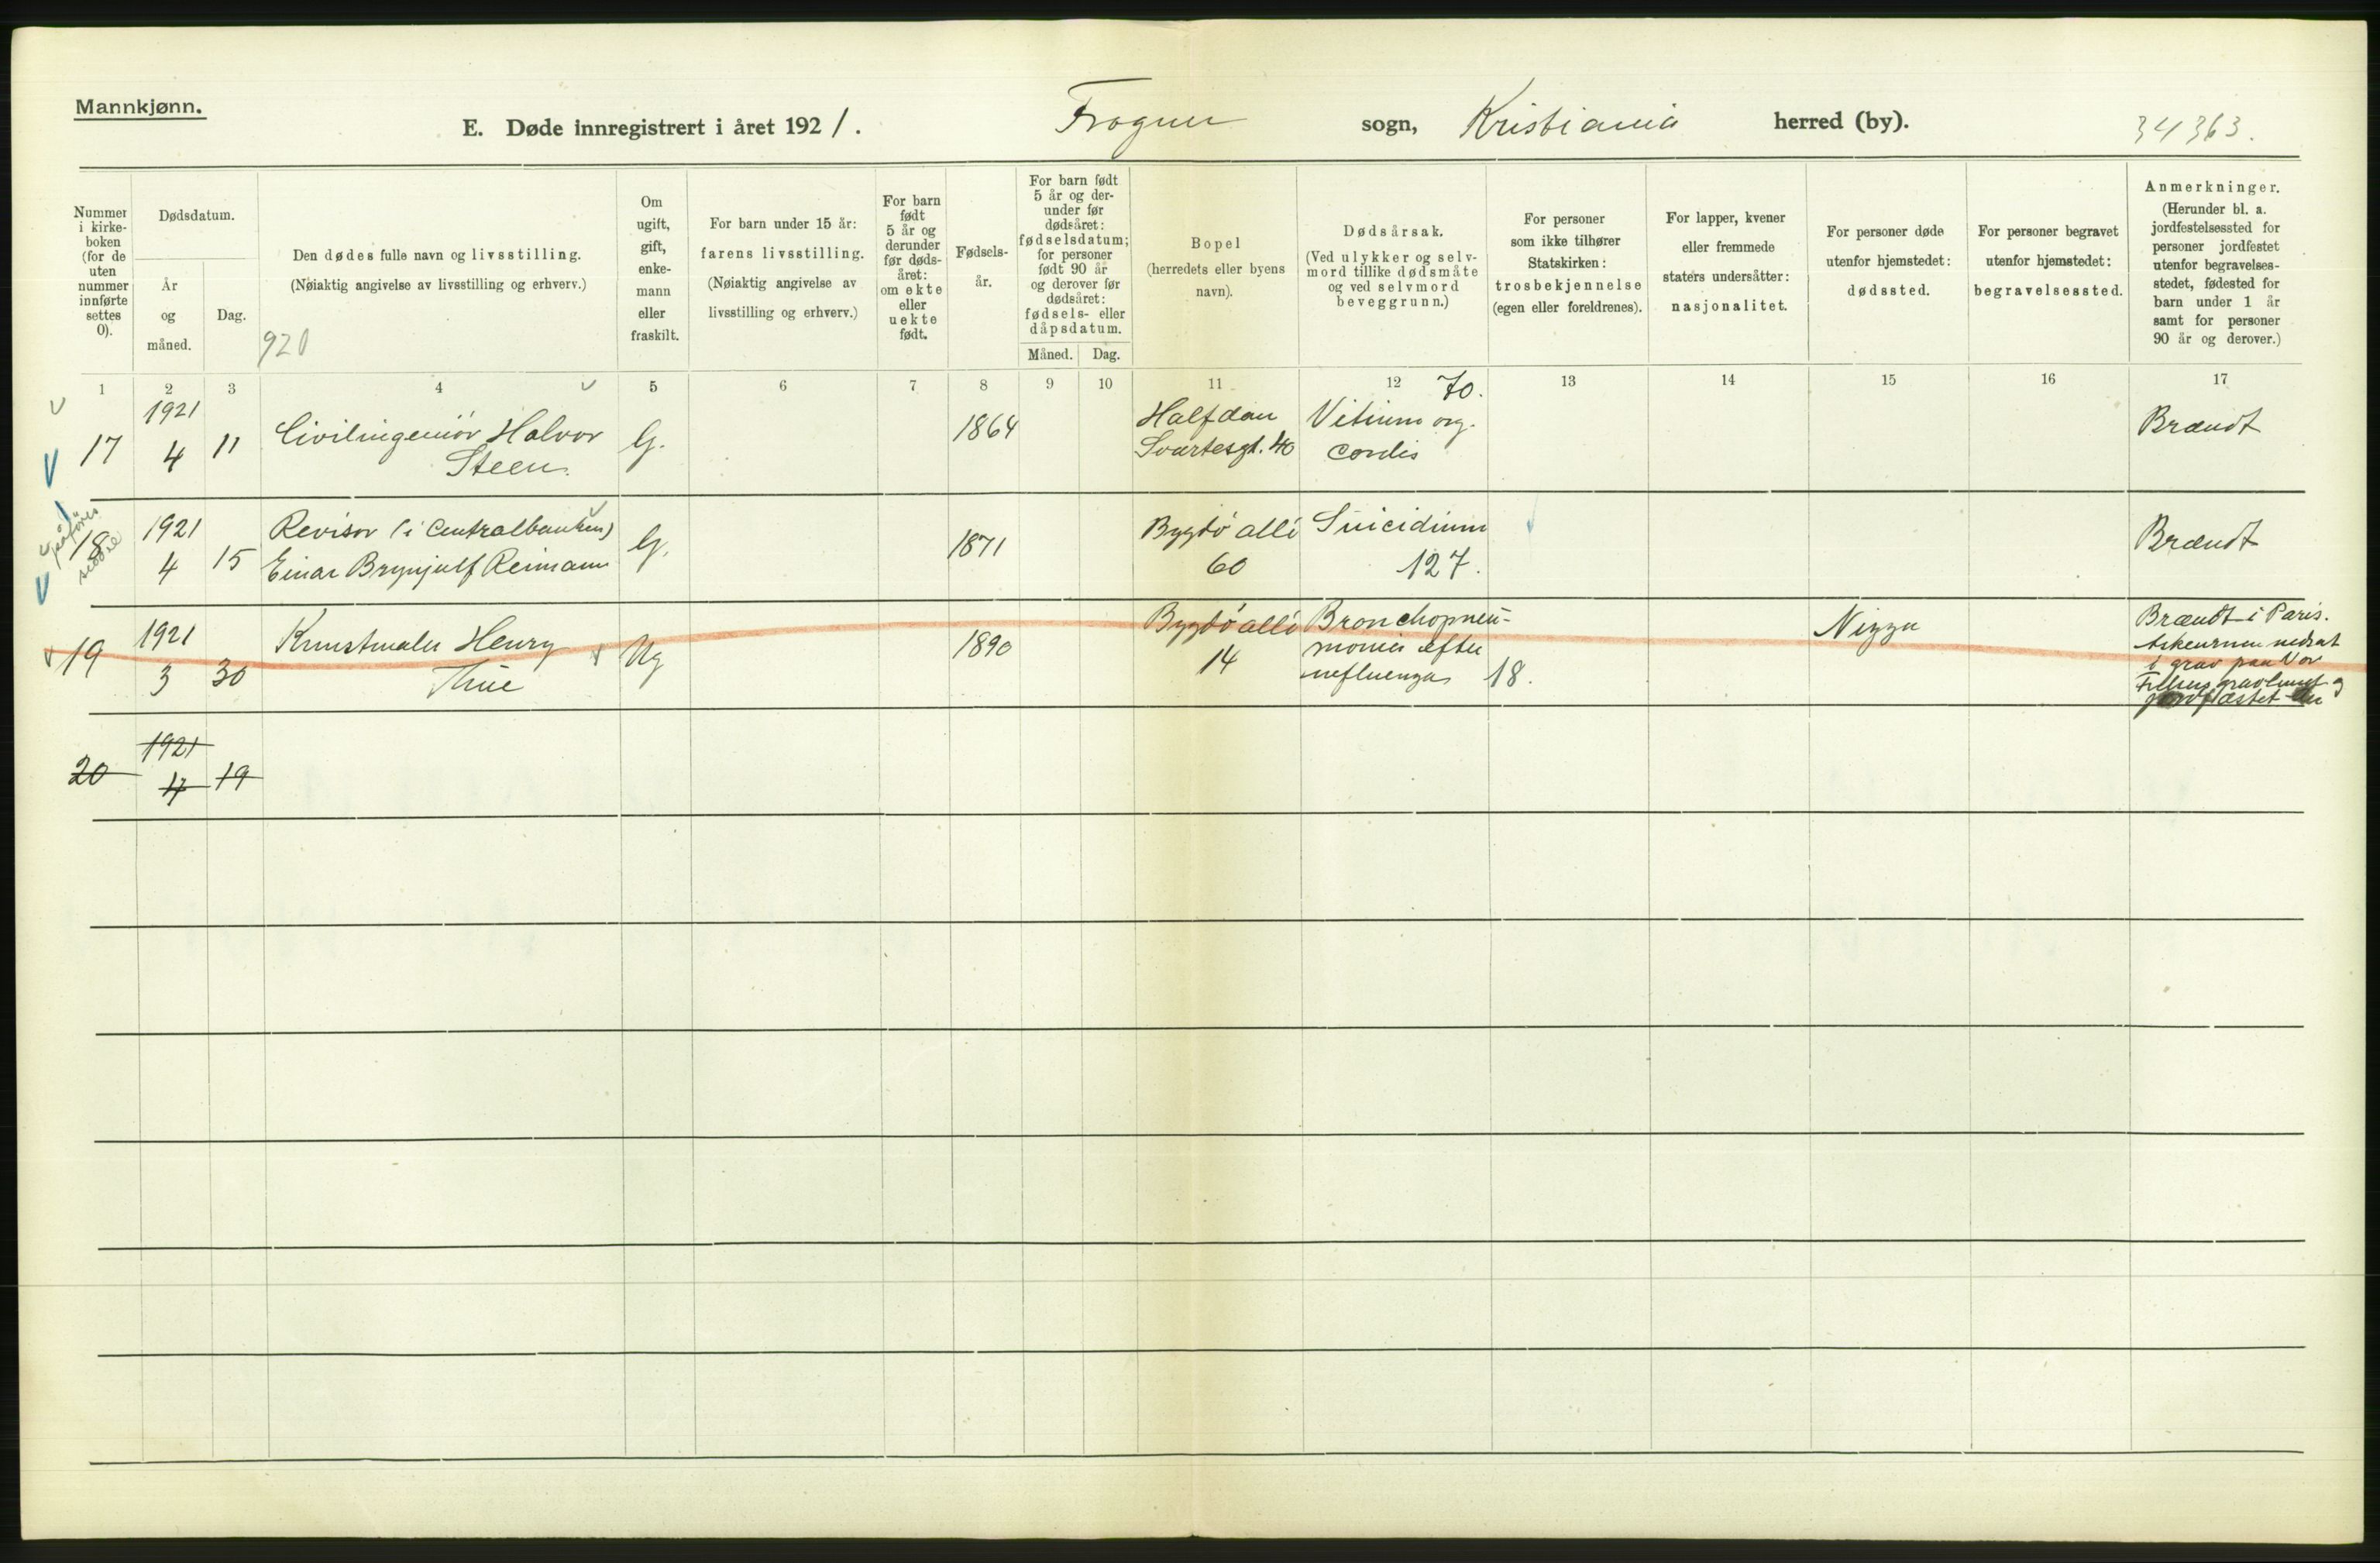 Mannkjønn.
E. Døde innregistrert i året 1921. Frogner sogn, Kristiania herred (by). 34363.
Nummer
i kirke-
boken
(for de
uten
nummer
innførte
settes
0).
Dødsdatum.
År
og
måned.
Dag.
Den dødes fulle navn og livsstilling.
(Nøiaktig angivelse av livsstilling og erhverv.)
920
Om
ugift,
gift,
enke-
mann
eller
fraskilt.
For barn under 15 år:
farens livsstilling.
(Nøiaktig angivelse av
livsstilling og erhverv.)
For barn
født
5 år og
derunder
før døds-
året:
om ekte
eller
uekte
født.
Fødsels-
år.
For barn født
5 år og der-
under før
dødsåret:
fødselsdatum;
for personer
født 90 år
og derover før
dødsåret:
fødsels- eller
dåpsdatum.
Måned. Dag.
Bopel
(herredets eller byens
navn).
Dødsårsak.
(Ved ulykker og selv-
mord tillike dødsmåte
og ved selvmord
beveggrunn.)
For personer
som ikke tilhører
Statskirken:
trosbekjennelse
(egen eller foreldrenes).
For lapper, kvener
eller fremmede
staters undersåtter:
nasjonalitet.
For personer døde
utenfor hjemstedet:
dødssted.
For personer begravet
utenfor hjemstedet:
begravelsessted.
Anmerkninger.
(Herunder bl. a.
jordfestelsessted for
personer jordfestet
utenfor begravelses-
stedet, fødested for
barn under 1 år
samt for personer
90 år og derover.)
1 2 3 4 5 6 7 8 9 10 11 12 13 14 15 16 17
17
1921
4
11
Civilingeniør Halvor
Steen.
G.
1864
Halfdan
Svartesgt. 40
70.
Vitium org.
cordis
Brandt
påføres
18
sedde
1921
4
15
Revisor (i Centralbanken)
Einar Brynjulf Reimann
G.
1871
Bygdö alle
60
Suicidium
127.
Brandt
19
1921
3
30
Kunstmaler Henry
Thue
Ug
1890
Bygdö alle
14
Bronchopneu-
monia efter
influenza 18.
Nizza
Brændt i Paris.
Askeurnen nedsat
i grav paa Vor
Frelsers gravlund og
20
1921
4
19